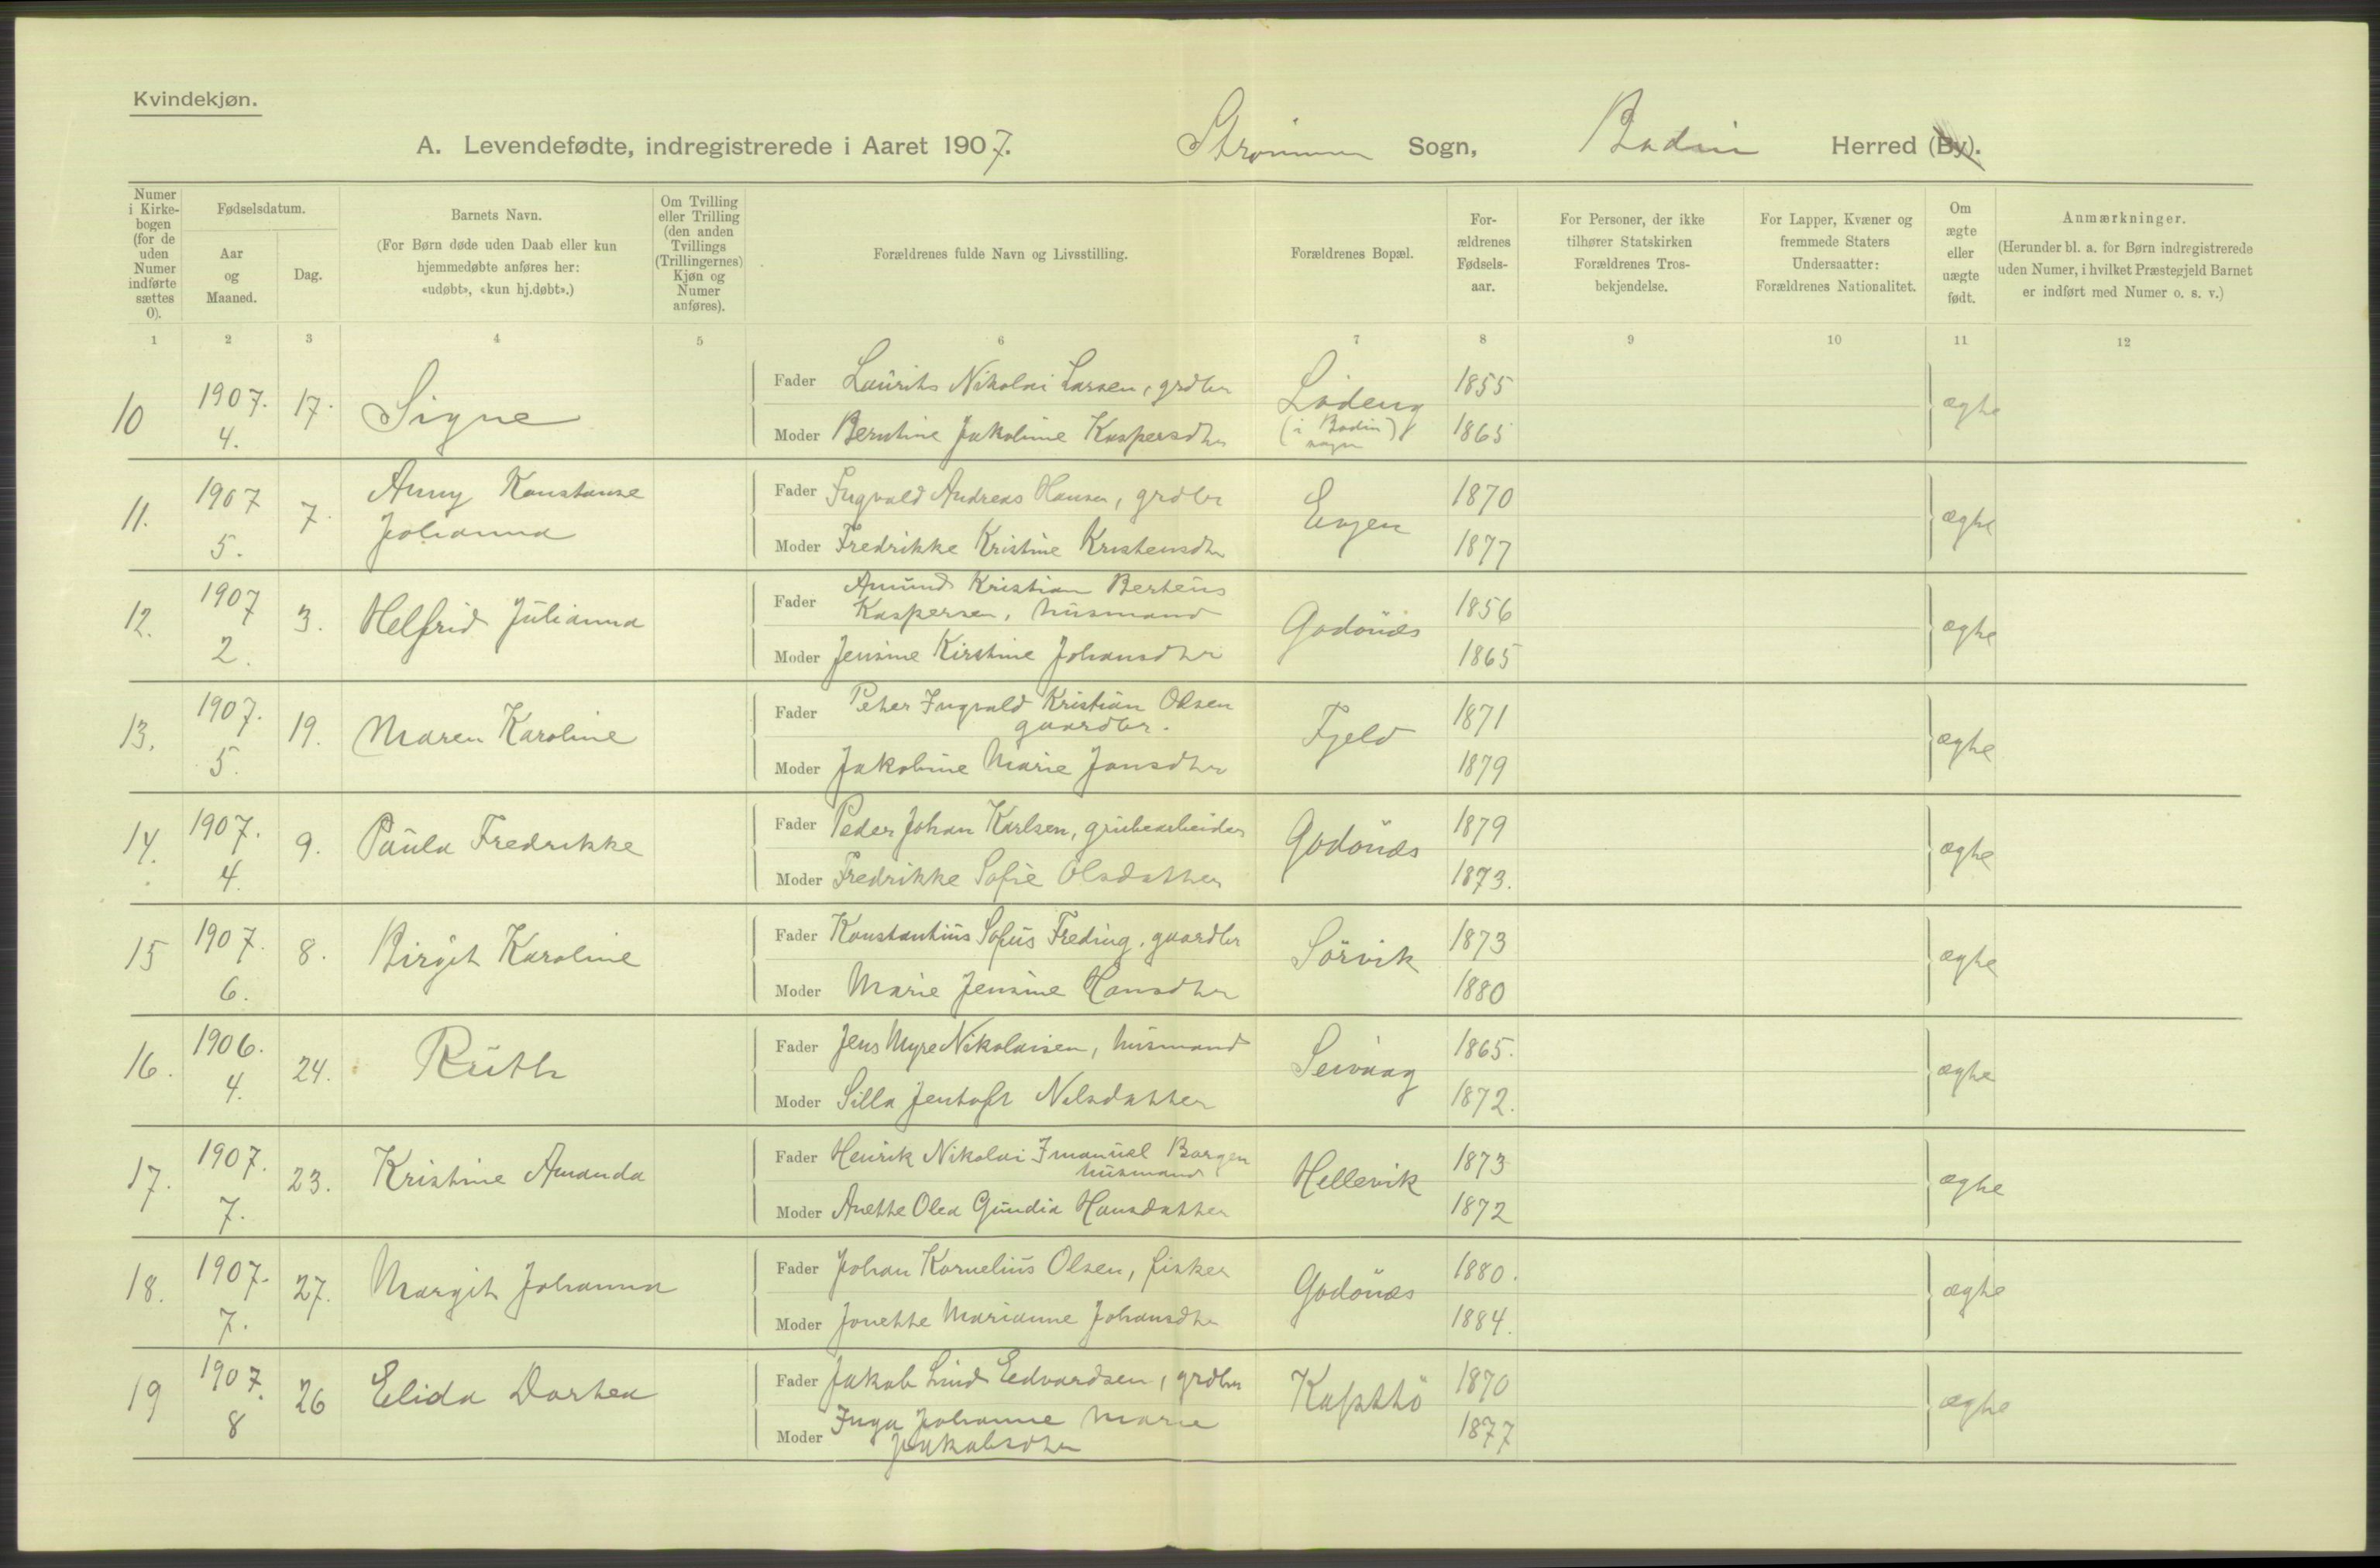 Kvindekjøn.
A. Levendefødte, indregistrerede i Aaret 1907. Strømmen Sogn, Bodin Herred (By).
Numer i Kirkebogen (for de uden Numer indførte sættes 0).
Fødselsdatum.
Aar og Maaned.
Dag.
Barnets Navn.
(For Børn døde uden Daab eller kun
hjemmedøbte anføres her:
«udøbt», «kun hj.døbt».)
Om Tvilling
eller Trilling
(den anden
Tvillings
(Trillingernes)
Kjøn og
Numer
anføres).
Forældrenes fulde Navn og Livsstilling.
Forældrenes Bopæl.
For-
ældrenes
Fødsels-
aar.
For Personer, der ikke
tilhører Statskirken
Forældrenes Tros-
bekjendelse.
For Lapper, Kvæner og
fremmede Staters
Undersaatter:
Forældrenes Nationalitet.
Om
ægte
eller
uægte
født.
Anmærkninger.
(Herunder bl. a. for Børn indregistrerede
uden Numer, i hvilket Præstegjeld Barnet
er indført med Numer o. s. v.)
1 2 3 4 5 6 7 8 9 10 11 12
10 1907. 4. 17. Signe
Fader Laurits Nikolai Larsen, grdbr Löding (i Bodin sogn) 1855 ægte
Moder Berntine Jakobine Kaspersdtr 1865
11. 1907 5. 7. Anny Konstanse Johanna
Fader Ingvald Andreas Hansen, grdbr Evjen 1870 ægte
Moder Fredrikke Kristine Kristensdtr 1877
12. 1907 2. 3. Helfrid Julianna
Fader Amund Kristian Berteus
Kaspersen, husmand Godönes 1856 ægte
Moder Jensine Kirstine Johansdtr 1865
13. 1907. 5. 19. Maren Karoline
Fader Peter Ingvald Kristian Olsen
gaardbr. Fjeld 1871 ægte
Moder Jakobine Marie Jonsdtr 1879
14. 1907. 4. 9. Paula Fredrikke
Fader Peder Johan Karlsen, grubearbeider Godönes 1879 ægte
Moder Fredrikke Sofie Olsdatter 1873.
15 1907. 6. 8. Birgit Karoline
Fader Konstantius Sofus Freding, gaardbr Sörvik 1873 ægte
Moder Marie Jensine Hansdtr 1880
16. 1906. 4. 24. Ruth
Fader Jens Myre Nikolaisen, husmand Seivaag 1865. ægte
Moder Silla Jentoft Nilsdatter 1872.
17. 1907. 7. 23. Kristine Amanda
Fader Henrik Nikolai Imanuel Borgen
husmand Hellevik 1873 ægte
Moder Anette Olea Gundia Hansdatter 1872
18. 1907. 7. 27. Margit Johanna
Fader Johan Kornelius Olsen, fisker Godönes 1880. ægte
Moder Jonette Marianne Johansdtr 1884.
19 1907. 8 26 Elida Dorthea
Fader Jakob Lind Edvardsen, grdbr Kapstö 1870 ægte
Moder Inga Johanne Marie
Jakobsdtr 1877